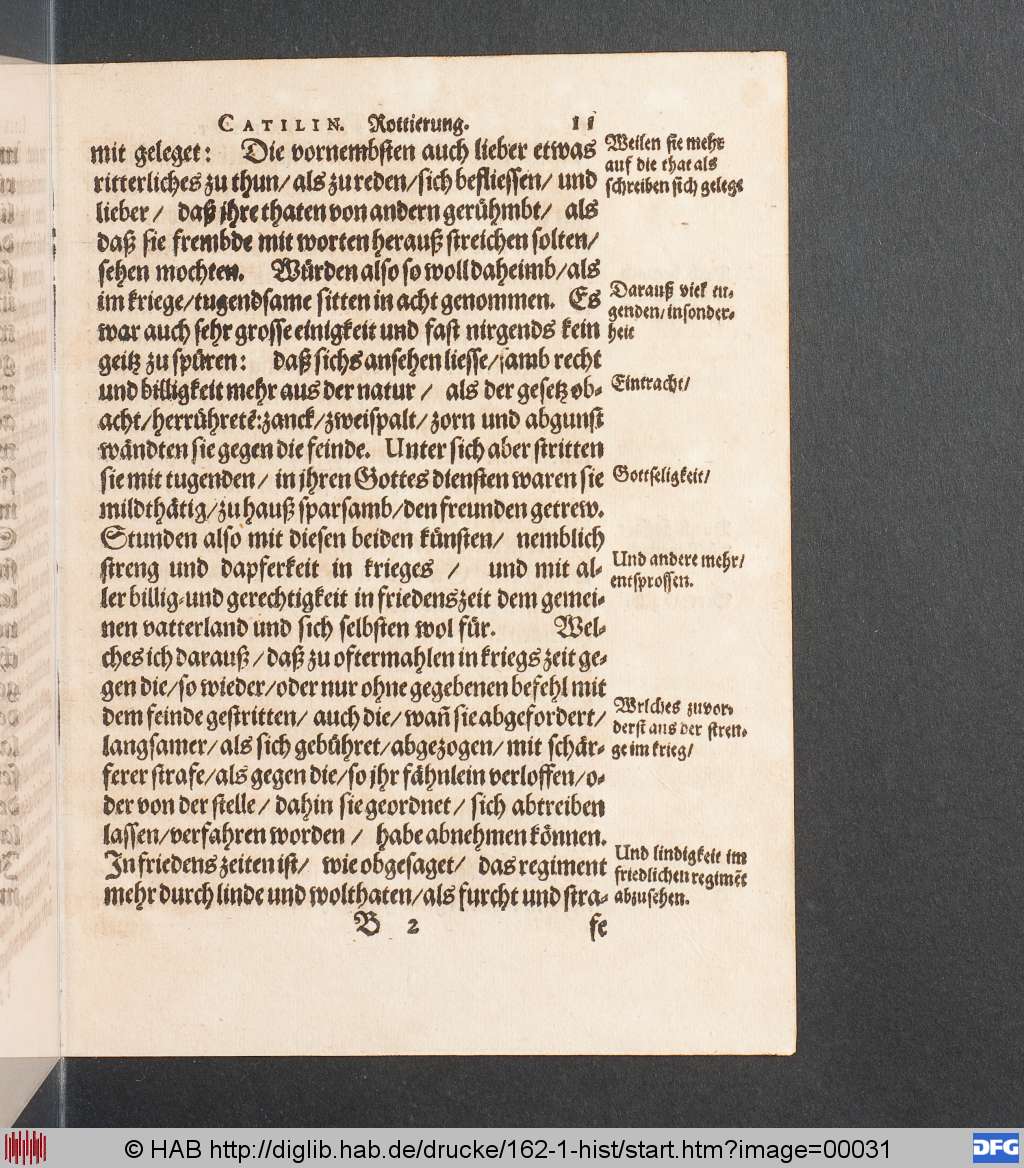 CATILIN. Rottierung. 11
mit geleget: Die vornembsten auch lieber etwas
ritterliches zu thun/ als zu reden/ sich befliessen/ und
lieber/ daß jhre thaten von andern gerühmbt/ als
daß sie frembde mit worten herauß streichen solten/
sehen mochten. Würden also so woll daheimb/ als
im kriege/ tugendsame sitten in acht genommen. Es
war auch sehr grosse einigkeit und fast nirgends kein
geitz zu spüren: daß sichs ansehen liesse/ samb recht
und billigkeit mehr aus der natur/ als der gesetz ob-
acht/ herrühretē: zanck/ zweispalt/ zorn und abgunst
wändten sie gegen die feinde. Unter sich aber stritten
sie mit tugenden/ in jhren Gottes diensten waren sie
mildthätig/ zu hauß sparsamb/ den freunden getrew.
Stunden also mit diesen beiden künsten/ nemblich
streng und dapferkeit in krieges / und mit al-
ler billig- und gerechtigkeit in friedens zeit dem gemei-
nen vatterland und sich selbsten wol für. Wel-
ches ich darauß/ daß zu oftermahlen in kriegs zeit ge-
gen die/ so wieder/ oder nur ohne gegebenen befehl mit
dem feinde gestritten/ auch die/ wañ sie abgefordert/
langsamer/ als sich gebühret/ abgezogen/ mit schär-
ferer strafe/ als gegen die/ so jhr fähnlein verloffen/ o-
der von der stelle/ dahin sie geordnet/ sich abtreiben
lassen/ verfahren worden/ habe abnehmen können.
In friedens zeiten ist/ wie obgesaget/ das regiment
mehr durch linde und wolthaten/ als furcht und stra-
B 2 fe
Weilen sie mehr
auf die that als
schreiben sich gelegt
Darauß viel tu-
genden/ insonder-
heit
Eintracht/
Gottseligkeit/
Und andere mehr/
entsprossen.
Welches zuvor-
derst aus der stren-
ge im krieg/
Und lindigkeit im
friedlichen regimēt
abzusehen.
© HAB http://diglib.hab.de/drucke/162-1-hist/start.htm?image=00031
DFG